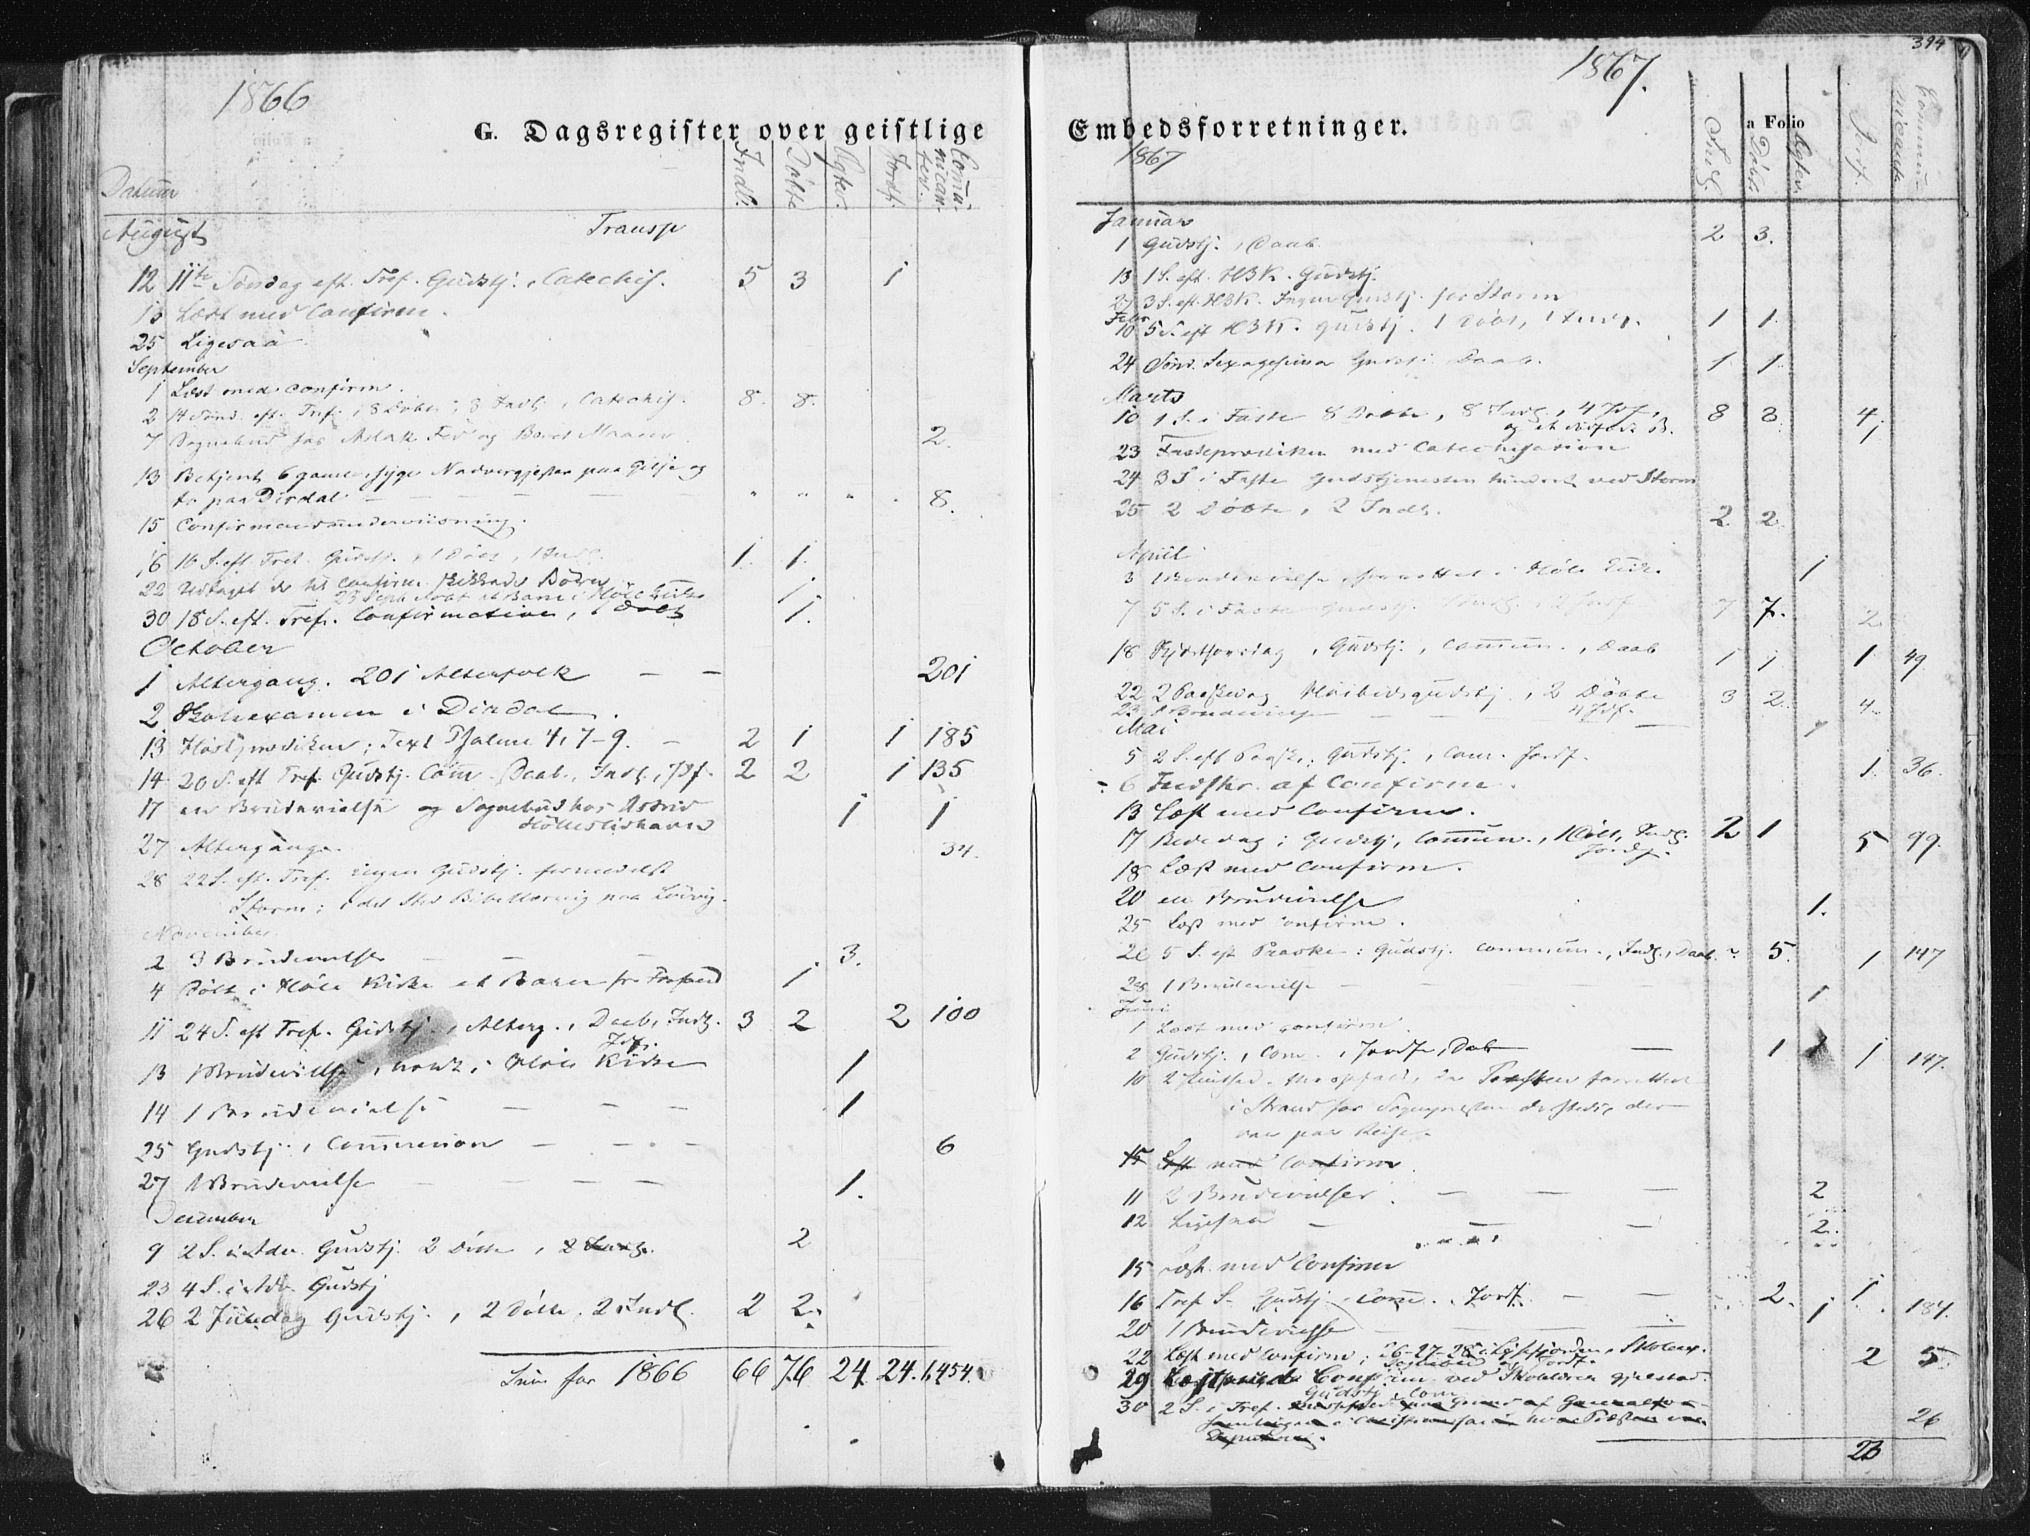 1866
G. Dagsregister over geistlige
Datum
Indl.
Døbte
Ægtev.
Jordf.
Comu-
nican-
ter.
August
Transp
12 11te Søndag eft. Tref. Gudstj., Catechis. 5 3 1
Læst med Confirm.
25 Ligesaa
September
1 Læst med Confirm.
2 14 Sønd. eft. Tref., 8 Døbte, 8 Indl., Catechis. 8. 8.
7 Sognebud hos Aslak og 2.
13 Betjent 6 gamle syge Nadvergjester paa Gilje og
to paa Dirdal 8.
15 Confirmandunderviisning.
16 16 S. eft. Tref. Gudstj., 1 Døbt, 1 Indl. 1. 1.
22 Confirm. Børn
23 Sept. døbt et Barn i Høle Kirke 1.
30 18 S. eft. Tref. Confirmation, 1 Døbt 1.
October
1 Altergang. 201 Alterfolk — — 201
2 Skoleexamen i Dirdal.
13 Høstprædiken; Text Psalme 4, 7-9. — 2 1 1 185
14 20 S. eft Tref. Gudstj. Com. Daab., Indl., Jdf. 2 2 1 135
17 en Brudevielse og Sognebud hos Astrid 1 1
27 Altergang. 34.
28 22 S. eft. Tref. ingen Gudstj. formedelst
Storm; i det Sted Bibellæsning paa
November
2 3 Brudevielser — — — 3.
4 Døbt i Høle Kirke et Barn fra 1
11 24 S. eft Tref. Gudstj., Alterg., Daab, Indl. 3 2 2 100
Jdf.
13 1 Brudevielse, i Høle Kirke 1
14 1 Brudevielse — — — 1
25 Gudstj., Communion — — — 6
27 1 Brudevielse — — — — 1.
December
9 2 S. i Adv. Gudstj. 2 Døbte, 2 Indl. 2
23 4 S. i Adv. Gudstj
26 2 Juledag Gudstj., 2 Døbte, 2 Indl. 2 2.
Sum for 1866 66 76 24. 24. 1,454.
1867.
394
Embedsforretninger.
a Folio
1867
Indl.
Døbt.
Ægtev.
Jordf.
Commu-
nicante
Januar
1 Gudstj., Daab 2 3.
13 1 S. eft. H3K. Gudstj.
27 3 S. eft. H3K. Ingen Gudstj. for Storm
Febr.
10 5 S. eft H3K. Gudstj. 1 Døbt, 1 Indl. 1 1.
24 Sønd. Sexagesima Gudstj. Daab. 1 1.
Marts
10 1 S. i Faste 8 Døbte, 8 Indl., 4 Jdf., 8 8. 4.
1
23 Fasteprædiken med Catechisation
24 3 S i Faste Gudstjenesten hindret ved Storm
25 2 Døbte, 2 Indl. 2 2
April
3 1 Brudevielse, forrettet i Høle Kirke. 1
7 5 S. i Faste Gudstj. 7 7. 2
18 Skjærthorsdag, Gudstj., Commun., Daab 1 1 1 49
22 2 Paaskedag Høitidsgudstj., 2 Døbte 3 2. 4.
4 Jdf.
23 1 Brudevielse — — — — 1
Mai
5 2 S. eft Paask., Gudstj., Com. Jordf. 1. 36.
6 Indskr. af Confirm.
13 Læst med Confirm.
17 Bededag; Gudstj, Commun., 1 Døbt, Indl. 2 1 5 99.
Jordf.
18 Læst med Confirm.
20 en Brudevielse 1.
25 Læst med Confirm.
26 5 S. eft Paaske: Gudstj. Commun., Indl., Daab. 5. 1 147
28 1 Brudevielse — — — — 1
Juni
1 Læst med Confirm.
2 Gudstj., Com., Jordf., Dab — 1 1 1 147.
10 2 Pintsed. Messefald, da Præsten forrettede
i Strand for Sognepræsten dersteds, der
var paa Reise.
15 Læst med Confirm.
11 2 Brudevielser. — — — 2
12 Ligesaa — — — 2.
15 Læst med Confirm
16 Tref. S. Gudstj. Com., Jordf. — — 2. 1. 184.
20 1 Brudevielse — — — — 1
22 Læst med Confirm; 26-27-28 i Lysefjorden, Skoleex.
Sognebud og Jordf. 2 5.
29 Læst med Confirm ved Skoleren Gjilestad.
Gudstj. Com.
30 2 S. i Tref. Messefald paa Grund af Generalfor-
samlingen i Christianssand hvor Præsten var 26
23